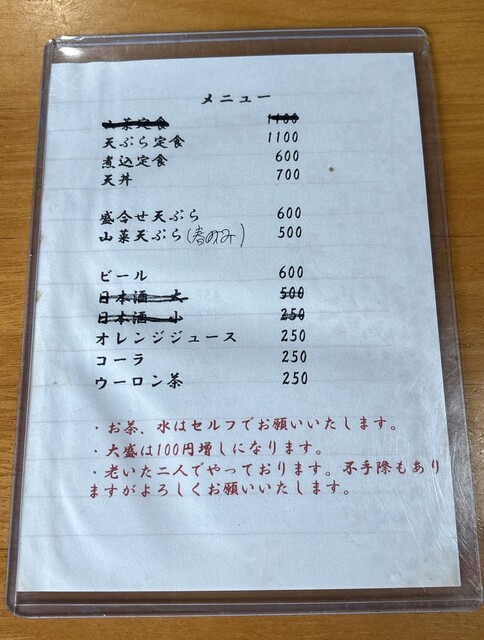 メニュー
山菜定食 1100
天ぷら定食 1100
煮込定食 600
天丼 700
盛合せ天ぷら 600
山菜天ぷら(春のみ) 500
ビール 600
日本酒 大 500
日本酒 小 250
オレンジジュース 250
コーラ 250
ウーロン茶 250
・お茶、水はセルフでお願いいたします。
・大盛は100円増しになります。
・老いた二人でやっております。不手際もあり
ますがよろしくお願いいたします。